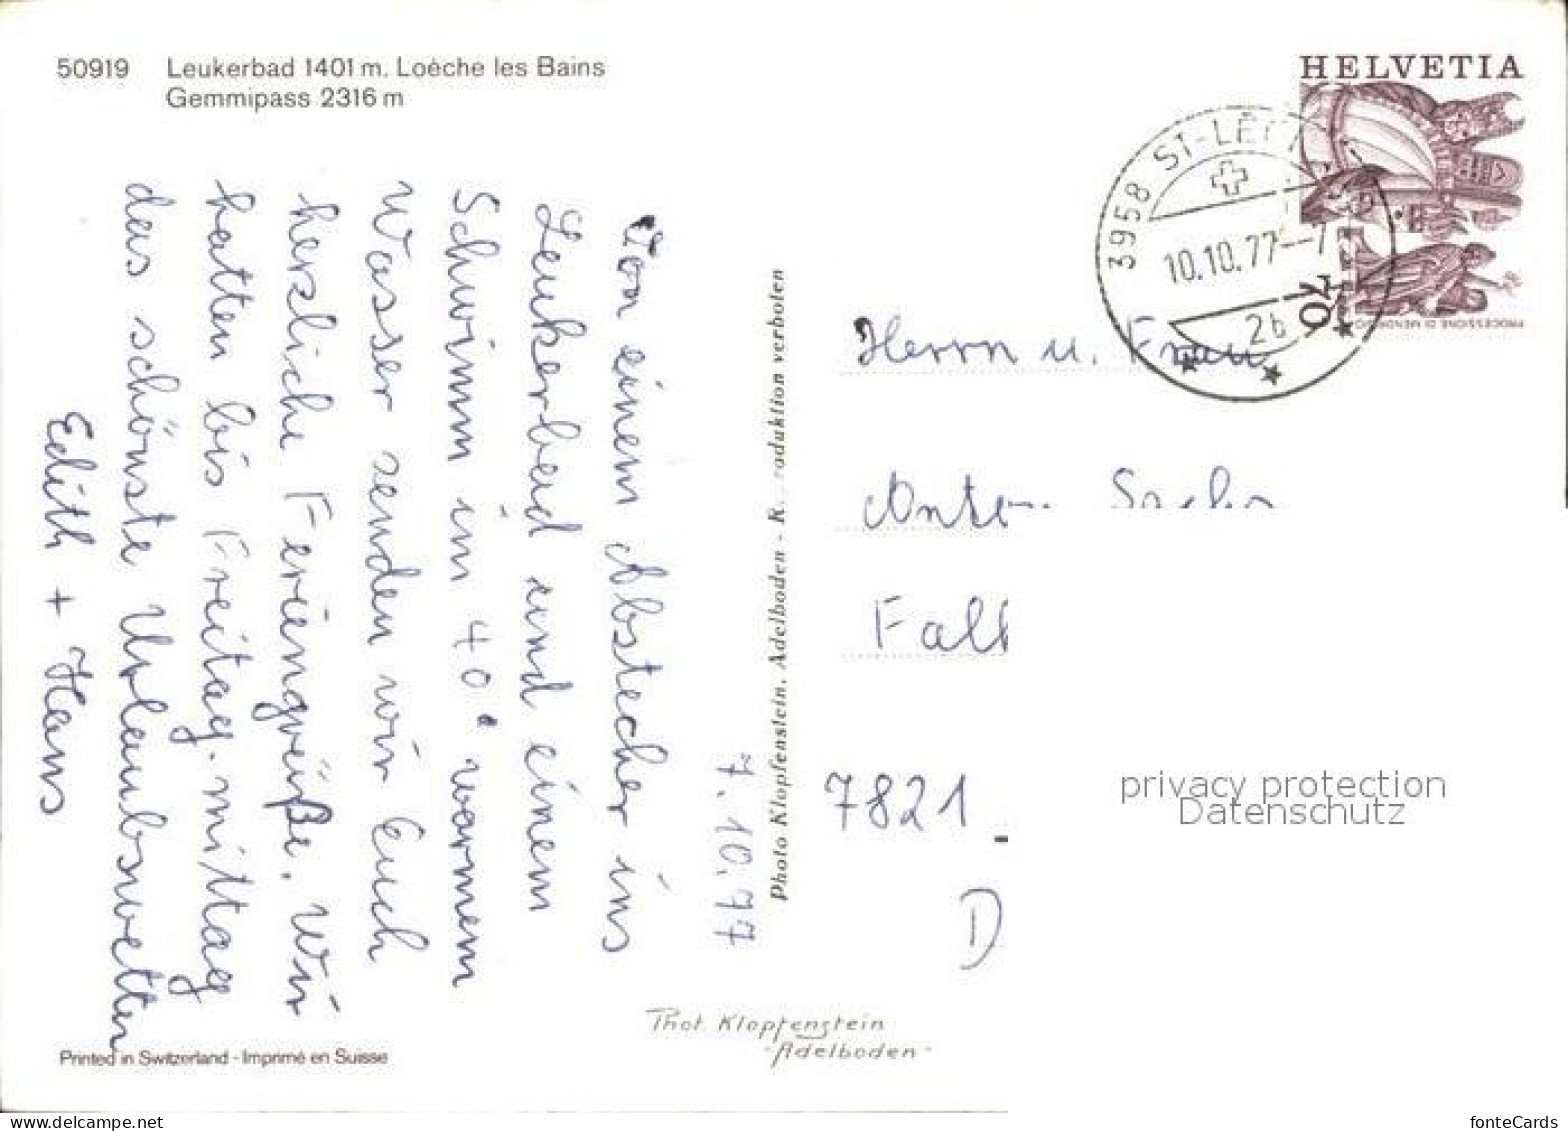 50919 Leukerbad 1401 m. Loèche les Bains
Gemmipass 2316 m
HELVETIA
70
PROCESSIONE DI MENDRISIO
3958 ST-LÉ
10.10.77--7
2b
7.10.77
Von einem Abstecher ins
Leukerbad und einem
Schwimm in 40° warmem
Wasser senden wir Euch
herzliche Feriengrüße. Wir
hatten bis Freitag-mittag
das schönste Urlaubswetter
Edith + Hans
Photo Klopfenstein, Adelboden - R oduktion verboten
Herrn u. Frau
Anto
Fall
7821
D
privacy protection
Datenschutz
Phot. Klopfenstein
-Adelboden-
Printed in Switzerland - Imprimé en Suisse
www.delcampe.net
fonteCards